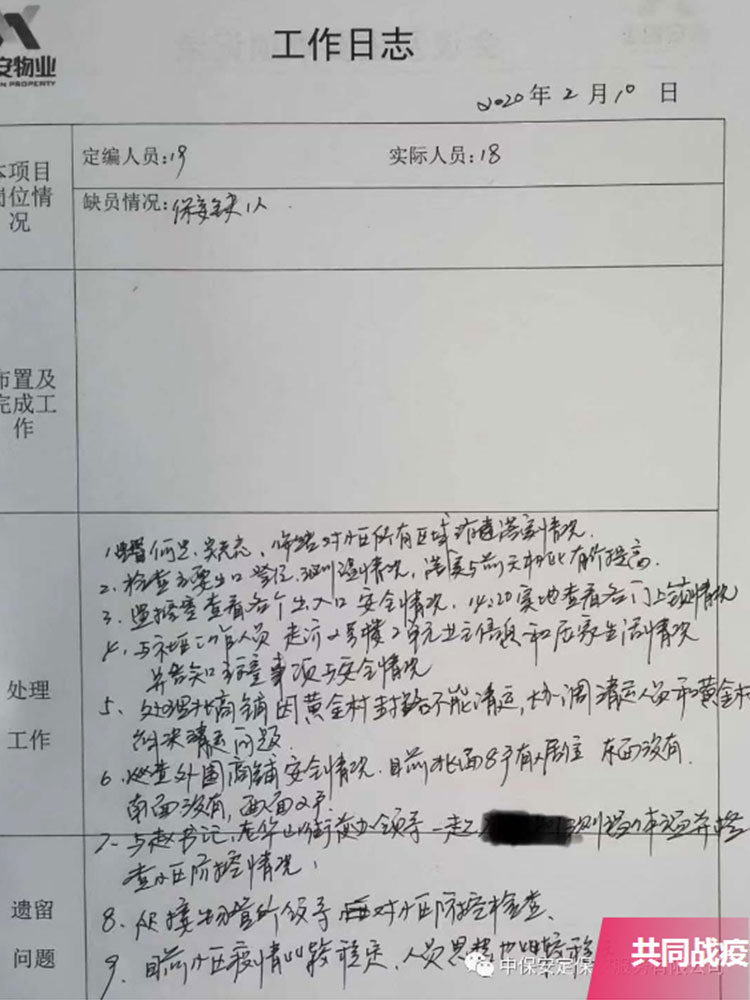 安物业
N PROPERTY
工作日志
2020年2月10日
本项目
岗位情
况
定编人员:19
实际人员:18
缺员情况:保安缺1人
布置及
完成工
作
处理
工作
对小区所有区域消毒情况.
2、检查主要出口登记、测温情况,与前天相比有所提高.
3、监控室查看各个出入口安全情况,14:20实地查看各门上锁情况
4、与社区工作人员走访2号楼2单元业主信息和居家生活情况
并告知注意事项与安全情况
5、处理北商铺因黄金村封路不能清运,协调清运人员和黄金村
解决清运问题.
6、检查外围商铺安全情况.目前北面8户有人居住 东面没有.
南面没有,西面2户.
7、与赵书记、办领导一起测场体温并检
查小区防控情况,
遗留
问题
8、迎接物管所领导对小区防控检查、
9、目前小区疫情比较稳定,人员思想也比较稳
中保安定保
服务有限公司
共同战疫